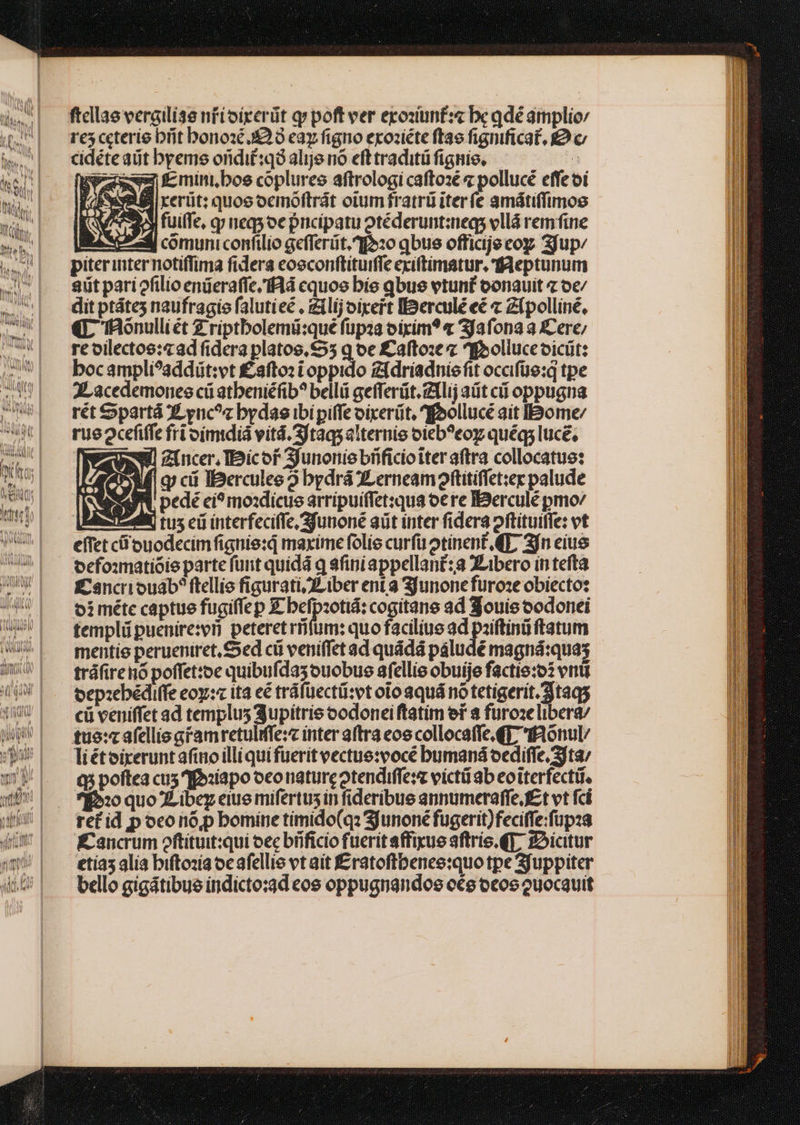 ſtellas vergilias nr̄i dixerūt qꝫ poſt ver exoriunt̄:⁊ he qdē amplio/
res ceteris hn̄t honorē. Qd̓ eaꝝ ſigno exoriēte ſtas ſignificat̄. Oc
cidēte aūt hyems oñdit̄:qd̓ alijs nō eſt traditū ſignis.
Emini. hos cōplures aſtrologi caſtorē ⁊ pollucē eſſe di
xerūt: quos demōſtrāt oium fratrū iter ſe amātiſſimos
fuiſſe, ꝙ neqꝫ de pn̄cipatu ꝯtēderunt:neqꝫ vllā rem ſine
cōmuni conſilio geſſerūt. Pro qbus officijs eoꝝ Jup/
piter inter notiſſima ſidera eos conſtituiſſe exiſtimatur. Neptunum
aūt pari ꝯſilio enūeraſſe. Nā equos his qbus vtunt̄ donauit ⁊ de/
dit ptāteꝫ naufragis ſaluti eē. Alij dixert̄ Herculē eē ⁊ Apollinē.
¶ Nōnulli ēt Triptholemū:quē ſupra dixim⁹ ⁊ Jaſona a Cere/
re dilectos:⁊ ad ſidera platos. Sꝫ q de Caſtore ⁊ Polluce dicūt:
hoc ampli⁹ addūt:vt Caſtor ī oppido Adriadnis ſit occiſus:q̄ tpe
Lacedemones cū atheniēſib⁹ bellū geſſerūt. Alij aūt cū oppugna
rēt Spartā Lync⁹ ⁊ hydas ibi piſſe dixerūt. Pollucē ait Home/
rus ꝯceſiſſe fri dimidiā vitā. Jtaqꝫ alternis dieb⁹ eoꝝ quēqꝫ lucē.
Ancer. Dicot̄ Junonis bn̄ficio iter aſtra collocatus:
ꝙ cū Hercules ꝯ hydrā Lerneam ꝯſtitiſſet:ex palude
pedē ei⁹ mordicus arripuiſſet:qua de re Herculē pmo/
tuꝫ eū interfeciſſe. Junonē aūt inter ſidera ꝯſtituiſſe: vt
eſſet cū duodecim ſignis:q̄ maxime ſolis curſu ꝯtinent̄. ¶ Jn eius
deformatiōis parte ſunt quidā q aſini appellant̄:a Libero in teſta
Cancri duab⁹ ſtellis figurati. Liber eni a Junone furore obiecto:
dr̄ mēte captus fugiſſe p Theſprotiā: cogitans ad Jouis dodonei
templū puenire:vn̄ peteret rn̄ſum: quo facilius ad priſtinū ſtatum
mentis perueniret. Sed cū veniſſet ad quādā paludē magnā:quaꝫ
trāſire nō poſſet:de quibuſdaꝫ duobus aſellis obuijs factis:dr̄ vnū
depꝛehēdiſſe eoꝝ:⁊ ita eē trāſuectū:vt oio aquā nō tetigerit. Jtaqꝫ
cū veniſſet ad templuꝫ Jupitris dodonei ſtatim dr̄ a furore libera/
tus:⁊ aſellis gr̄am retuliſſe:⁊ inter aſtra eos collocaſſe. ¶ Nōnul/
li ēt dixerunt aſino illi qui fuerit vectus:vocē humanā dediſſe. Jta/
qꝫ poſtea cuꝫ Priapo deo nature ꝯtendiſſe:⁊ victū ab eo iterfectū.
Pro quo Libeꝝ eius miſertuꝫ in ſideribus annumeraſſe. Et vt ſci
ret̄ id p deo nō p homine timido(qꝛ Junonē fugerit)feciſſe:ſupra
Cancrum ꝯſtituit:qui dee bn̄ficio fuerit affixus aſtris. ¶ Dicitur
etiaꝫ alia hiſtoria de aſellis vt ait Eratoſthenes:quo tpe Juppiter
bello gigātibus indicto:ad eos oppugnandos oēs deos ꝯuocauit